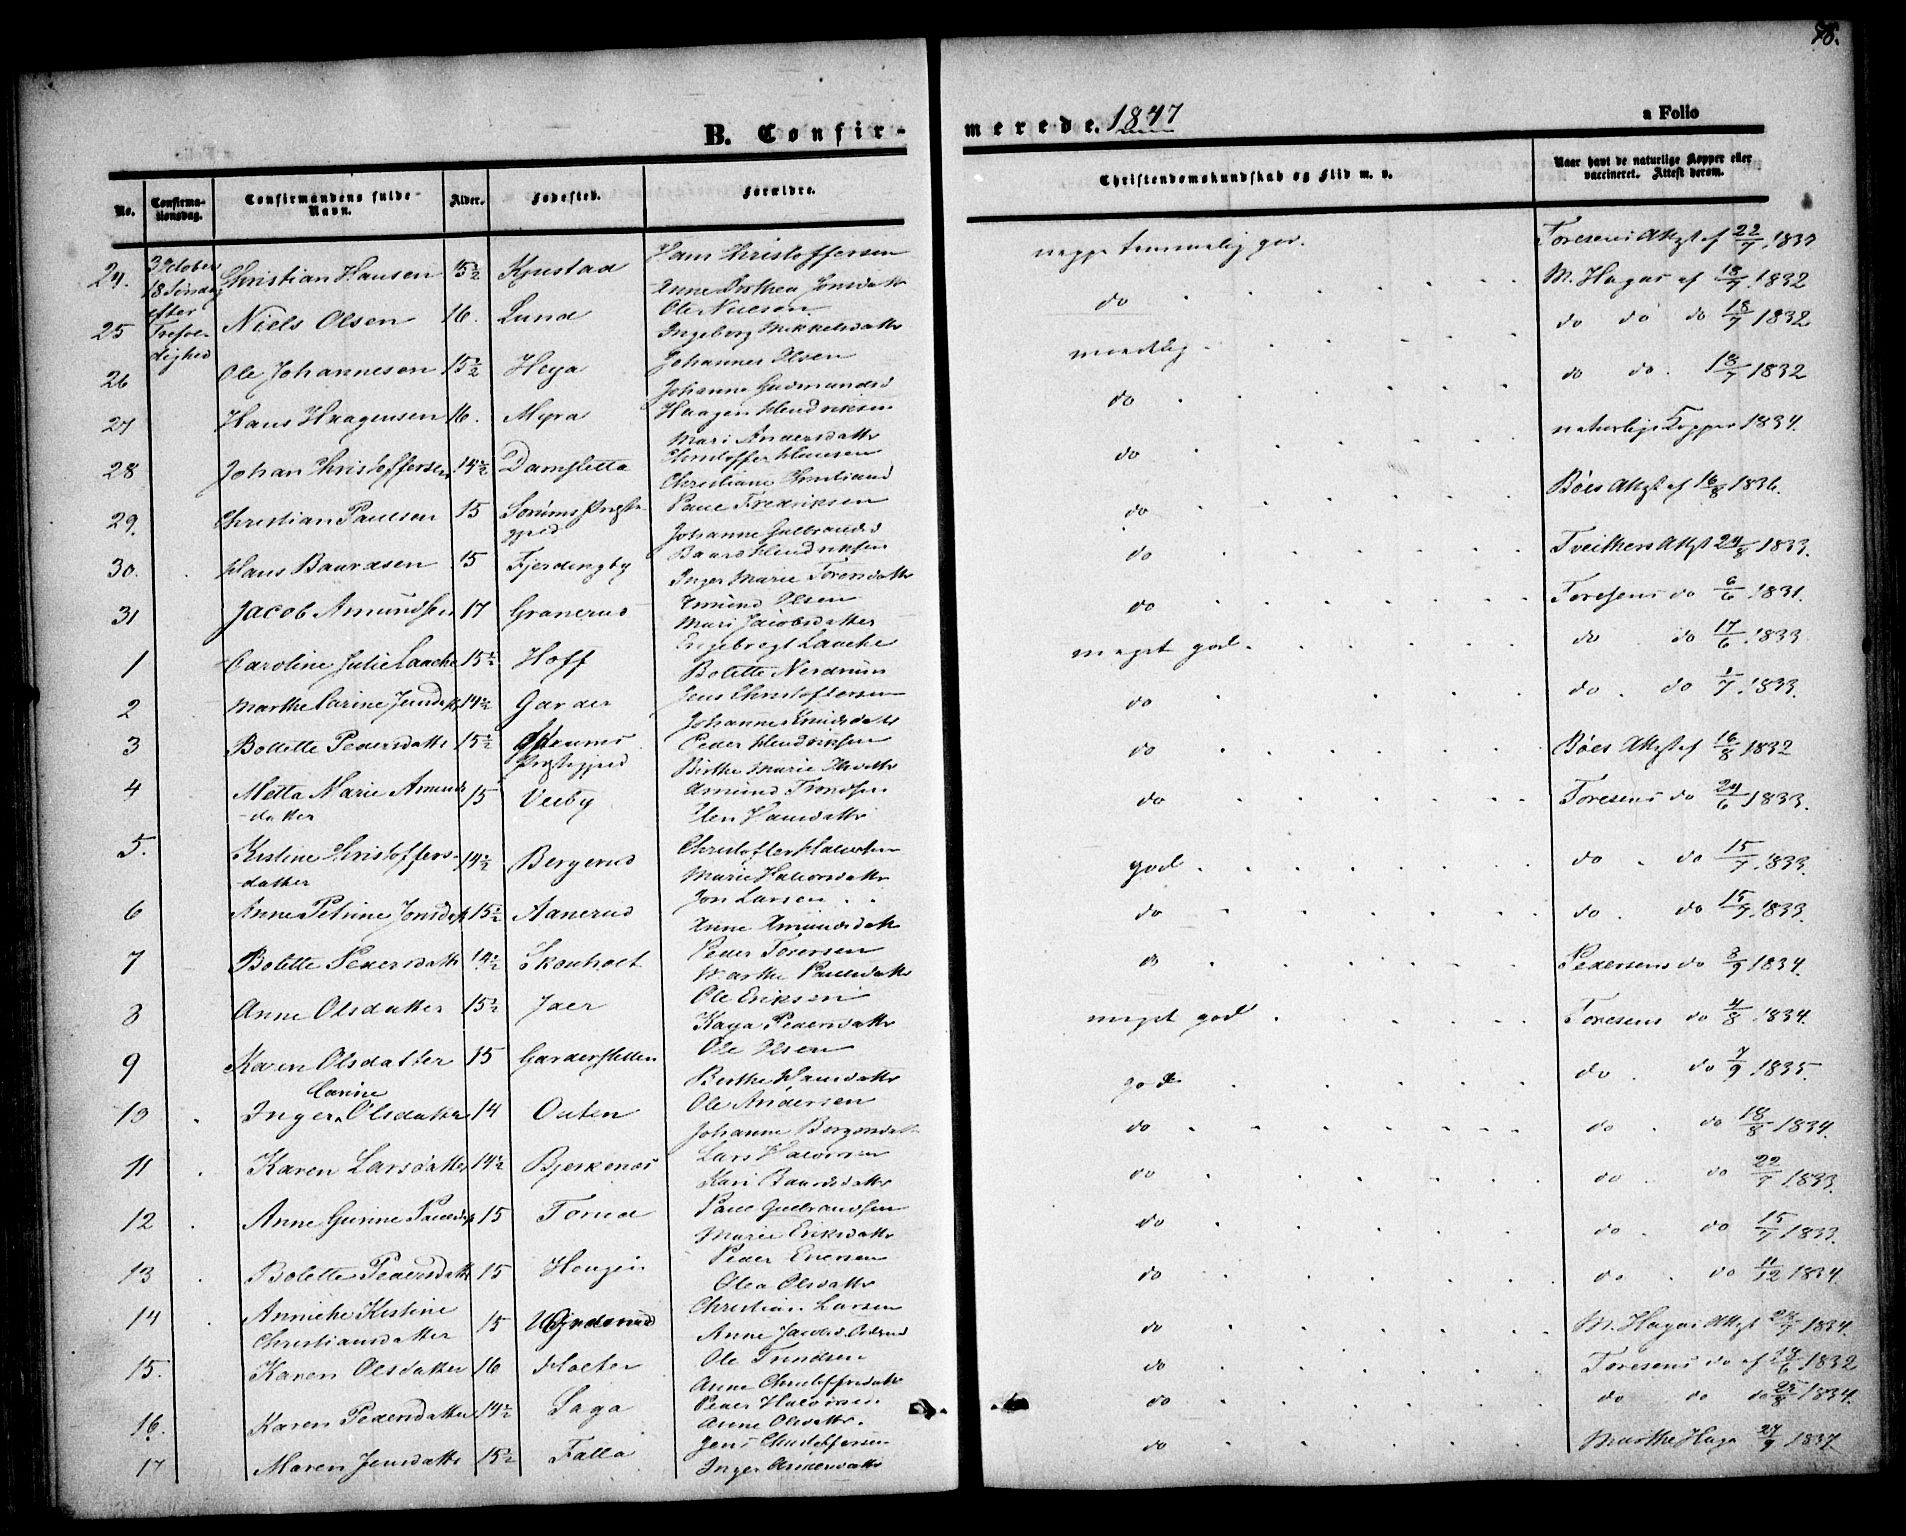 78.
B. Confirmerede. 1847
a Folio
No. Confirmationsdag. Confirmandens fulde Navn. Alder. Fødested. Forældre. Christendomskundskab og Flid m. v. Naar havt de naturlige Kopper eller vaccineret. Attest derom.
3 October 18 Søndag efter Trefoldighed
24. Christian Hansen 15½ Kjustad Hans Christoffersen Anne Dorthea Jonsdatt neppe temmelig god. Toresens Attest af 22/7 1833
25 Niels Olsen 16. Lund Ole Nielsen Ingeborg Mikkelsdattr do M. Hagas af 18/7 1832
26 Ole Johannesen 15½ Heya Johannes Olsen Johanne Gudmundsd maadelig do do do 18/7 1832
27 Hans Haagensen 16. Myra Haagen Hendriksen Mari Andersdattr do do do. 18/7 1832
28 Johan Christoffersen 14½ Damsletta Christoffer Hansen Christiane Christiansd do naturlige Kopper 1834.
29. Christian Paulsen 15 Sørums Præstegjeld Paul Fredriksen Johanne Gulbrandsd do Bøes Attest af 16/8 1836.
30. Hans Baardsen 15 Fjerdingby Baard Hendriksen Inger Marie Toresdattr do Tveithers Attest 24/8 1833.
31 Jacob Amundsen 17 Granerud Amund Olsen Mari Jacobsdatter do Toresens do 6/6 1831.
1 Caroline Julie Laache 15½ Hoff Engebregt Laache Bolette Nerdrum meget god. do do 17/6 1833.
2 Marthe Carine Jensdatt 14½ Garder Jens Christoffersen Johanne Knudsdatt do do. do 1/7 1833.
3 Bollette Pedersdattr 15½ Sørums Præstegjeld Peder Hendriksen Birthe Marie do Bøes Attest af 16/8 1832
4 Mette Marie Amunds-datter 15 Veeby Amund Trondsen Elen Hansdattr do Toresens do 24/6 1833.
5. Kistine Christoffers-datter 14½ Bergerud Christoffer Halvorsen Marie Halvorsdattr god do do 15/7 1833.
6 Anne Petrine Jonsdatt 15½ Aanerud Jon Larsen Anne Amundsdatt do do. do 15/7 1833.
7 Bolette Pedersdattr 14½ Skouholt Peder Toresen Marthe Paulsdattr do Pedersens do 3/9 1834.
8 Anne Olsdatter 15½ Jaer Ole Eriksen Kaya Pedersdattr meget god Toresens do 4/8 1834.
9 Karen Olsdatter 15 Gardersletten Ole Olsen Berthe Hansdattr god do. do 7/9 1835.
10 Inger Carine Olsdatter 14 Outen Ole Andersen Johanne Borgersdatt do do. do 18/8 1834.
11 Karen Larsdatter 14½ Bjerkenes Lars Halvorsen Kari Baardsdattr do do. do 22/7 1833.
12 Anne Gurine Paulsdatt 15 Torud Paul Gulbrandsen Marie Eriksdattr do do. do 15/7 1833.
13 Bolette Pedersdattr 15 Hougen Peder Evensen Olea Olsdattr do do. do 11/12 1834.
14 Anniche Kistine Christiansdatter 15 Christian Larsen Anne Jacobsd. do M. Hagas Attest 24/7 1834.
15. Karen Olsdatter 16 Holter Ole Trondsen Anne Christoffersdattr do Toresens do af 18/6 1832
16. Karen Pedersdatter 14½ Saga Peder Halvorsen Anne Olsdattr. do do do do 25/8 1834.
17 Maren Jensdattr 15½ Falla Jens Christoffersen Inger Andersdattr do Marthe Haga 24/9 1837